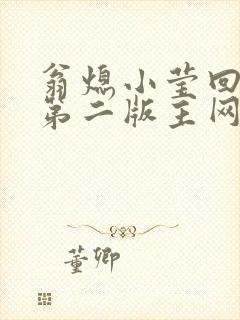 翁熄小莹回
第二版主网
董卿